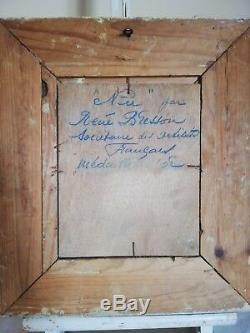 "Nu" par
René Bresson
Sociétaire des Artistes
Français
Médaille d'or